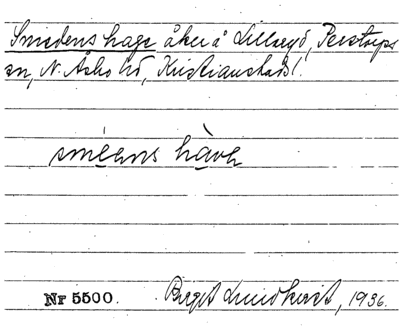 Smedens hage åker å Lillaryd, Perstorps
sn, N. Åsbo hd, Kristianstads l.
sméens hàva
Nr 5500. Birgit Lundkvist, 1936.